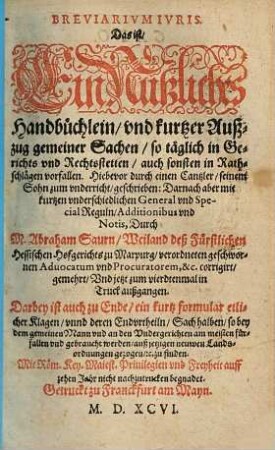 BREVIARIVM IVRIS.
Das ist/
Ein Nützlichs
Handbüchlein/ vnd kurtzer Auß⸗
zug gemeiner Sachen/ so täglich in Ge⸗
richts vnd Rechtstetten/ auch sonsten in Rath⸗
schlägen vorfallen. Hiebevor durch einen Cantzler/ seinem
Sohn zum vnderricht/ geschrieben: Darnach aber mit
kurtzen vnderschiedlichen General vnd Spe⸗
cial Reguln/ Additionibus vnd
Notis, Durch
M. Abraham Saurn/ Weiland deß Fürstlichen
Hessischen Hofgerichts zu Marpurg/ verordneten geschwor⸗
nen Aduocatum vnd Procuratorem, &c. corrigirt/
gemehrt/ Vnd jetzt zum vierdtenmal in
Truck außgangen.
Darbey ist auch zu Ende/ ein kurtz formular etli⸗
cher Klagen/ vnnd deren Endvrtheiln/ Sach halben/ so bey
dem gemeinen Mann vnd an den Vndergerichten am meisten für⸗
fallen vnd gebraucht werden/ auß jetzigen neuwen Landts⸗
ordnungen gezogen/ &c. zu finden.
Mit Röm. Key. Maiest. Privilegien vnd Freyheit auff
zehen Jahr nicht nachzutrucken begnadet.
Getruckt zu Franckfurt am Mayn.
M. D. XCVI.